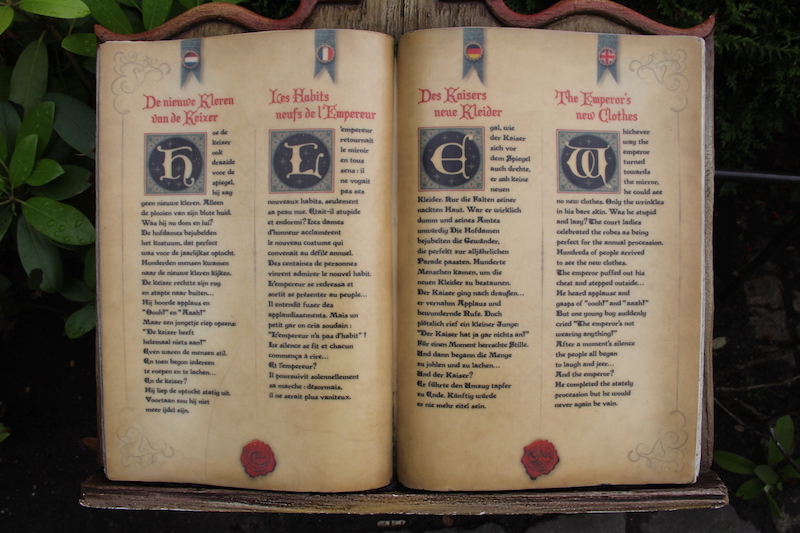 De nieuwe Kleren
van de Keizer
Hoe de
keizer
ook
draaide
voor de
spiegel,
hij zag
geen nieuwe kleren. Alleen
de plooien van zijn blote huid.
Was hij nu dom en lui?
De hofdames bejubelden
het kostuum, dat perfect
was voor de jaarlijkse optocht.
Honderden mensen kwamen
naar de nieuwe kleren kijken.
De keizer rechtte zijn rug
en stapte naar buiten...
Hij hoorde applaus en
"Oooh!" en "Aaah!"
Maar een jongetje riep opeens:
"De keizer heeft
helemaal niets aan!"
Even waren de mensen stil.
En toen begon iedereen
te roepen en te lachen...
En de keizer?
Hij liep de optocht statig uit.
Voortaan zou hij niet
meer ijdel zijn.
Les Habits
neufs de l'Empereur
L'empereur
retournait
le miroir
en tous
sens : il
ne voyait
pas ses
nouveaux habits, seulement
sa peau nue. Était-il stupide
et endormi? Les dames
d'honneur acclamèrent
le nouveau costume qui
convenait au défilé annuel.
Des centaines de personnes
vinrent admirer le nouvel habit.
L'empereur se redressa et
sortit se présenter au peuple...
Il entendit fuser des
applaudissements. Mais un
petit gar on cria soudain :
"L'empereur n'a pas d'habit" !
Les silence se fit et chacun
commença à rire...
Et l'empereur?
Il poursuivit solennellement
sa marche : désormais,
il ne serait plus vaniteux.
Des Kaisers
neue Kleider
Egal, wie
der Kaiser
sich vor
dem Spiegel
auch drehte,
er sah keine
neuen
Kleider. Nur die Falten seiner
nackten Haut. War er wirklich
dumm und seines Amtes
unwürdig Die Hofdamen
bejubelten die Gewänder,
die perfekt zur alljährlichen
Parade passten. Hunderte
Menschen kamen, um die
neuen Kleider zu bestaunen.
Der Kaiser ging nach draußen...
er vernahm Applaus und
bewundernde Rufe. Doch
plötzlich rief ein kleiner Junge:
"Der Kaiser hat ja gar nichts an!"
Für einen Moment herrschte Stille.
Und dann begann die Menge
zu johlen und zu lachen...
Und der Kaiser?
Er führte den Umzug tapfer
zu Ende. Künftig würde
er nie mehr eitel sein.
The Emperor's
new Clothes
Whichever
way the
emperor
turned
towards
the mirror,
he could see
no new clothes. Only the wrinkles
in his bare skin. Was he stupid
and lazy? The court ladies
celebrated the robes as being
perfect for the annual procession.
Hundreds of people arrived
to see the new clothes.
The emperor puffed out his
chest and stepped outside...
He heard applause and
gasps of "oooh!" and "aaah!"
But one young boy suddenly
cried "The emperor's not
wearing anything!"
After a moment's silence
the people all began
to laugh and jeer...
And the emperor?
He completed the stately
procession but he would
never again be vain.